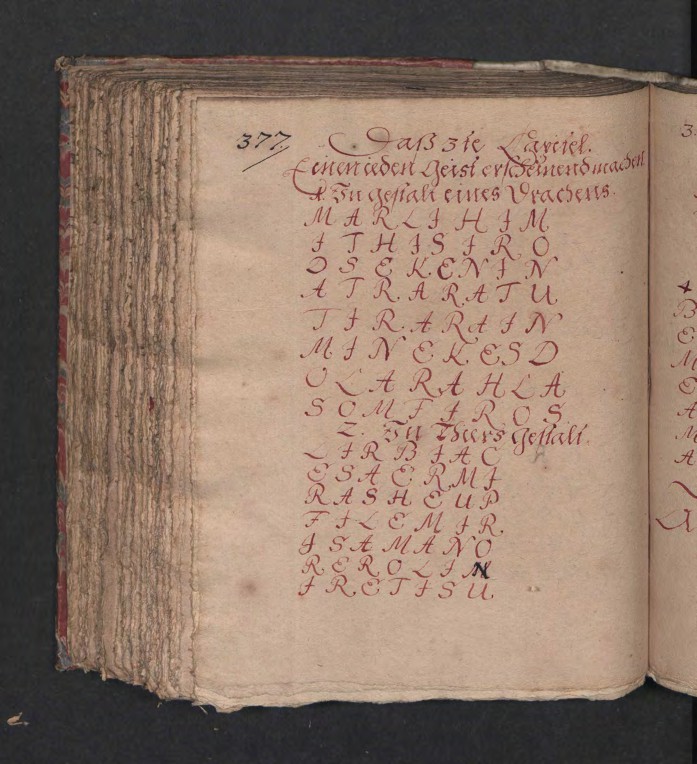 377.
Daß 3te Capitel.
Einen ieden Geist erscheinend machen
1. In gestalt eines Drachens.
M A R L I H I M
I T H I S I R O
D S E K E N I N
A T R A R A T U
T I R A R A I N
M I N E K E S D
O L A R A H L A
S O M I I R O S
2. In Thiers Gestalt.
L I R B I A C
E S A E R M I
R A S H E U P
F I L E M I R
I S A M A N O
R E R O L I N
I R E T I S U
3.
+
B
E
M
O
A
M
A